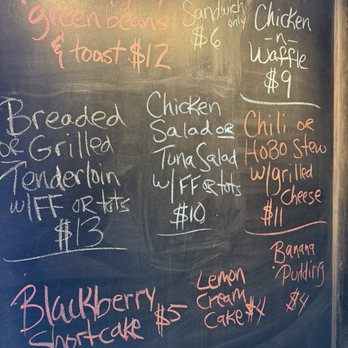 green beans
& toast $12
Sandwich
only
$6
Chicken
-n-
Waffle
$9
Breaded
or Grilled
Tenderloin
w/FF OR tots
$13
Chicken
Salad OR
Tuna Salad
w/FF or tots
$10
Chili or
Hobo Stew
w/grilled
cheese
$11
Blackberry $5
Shortcake
Lemon
Cream
Cake $4
Banana
Pudding
$4